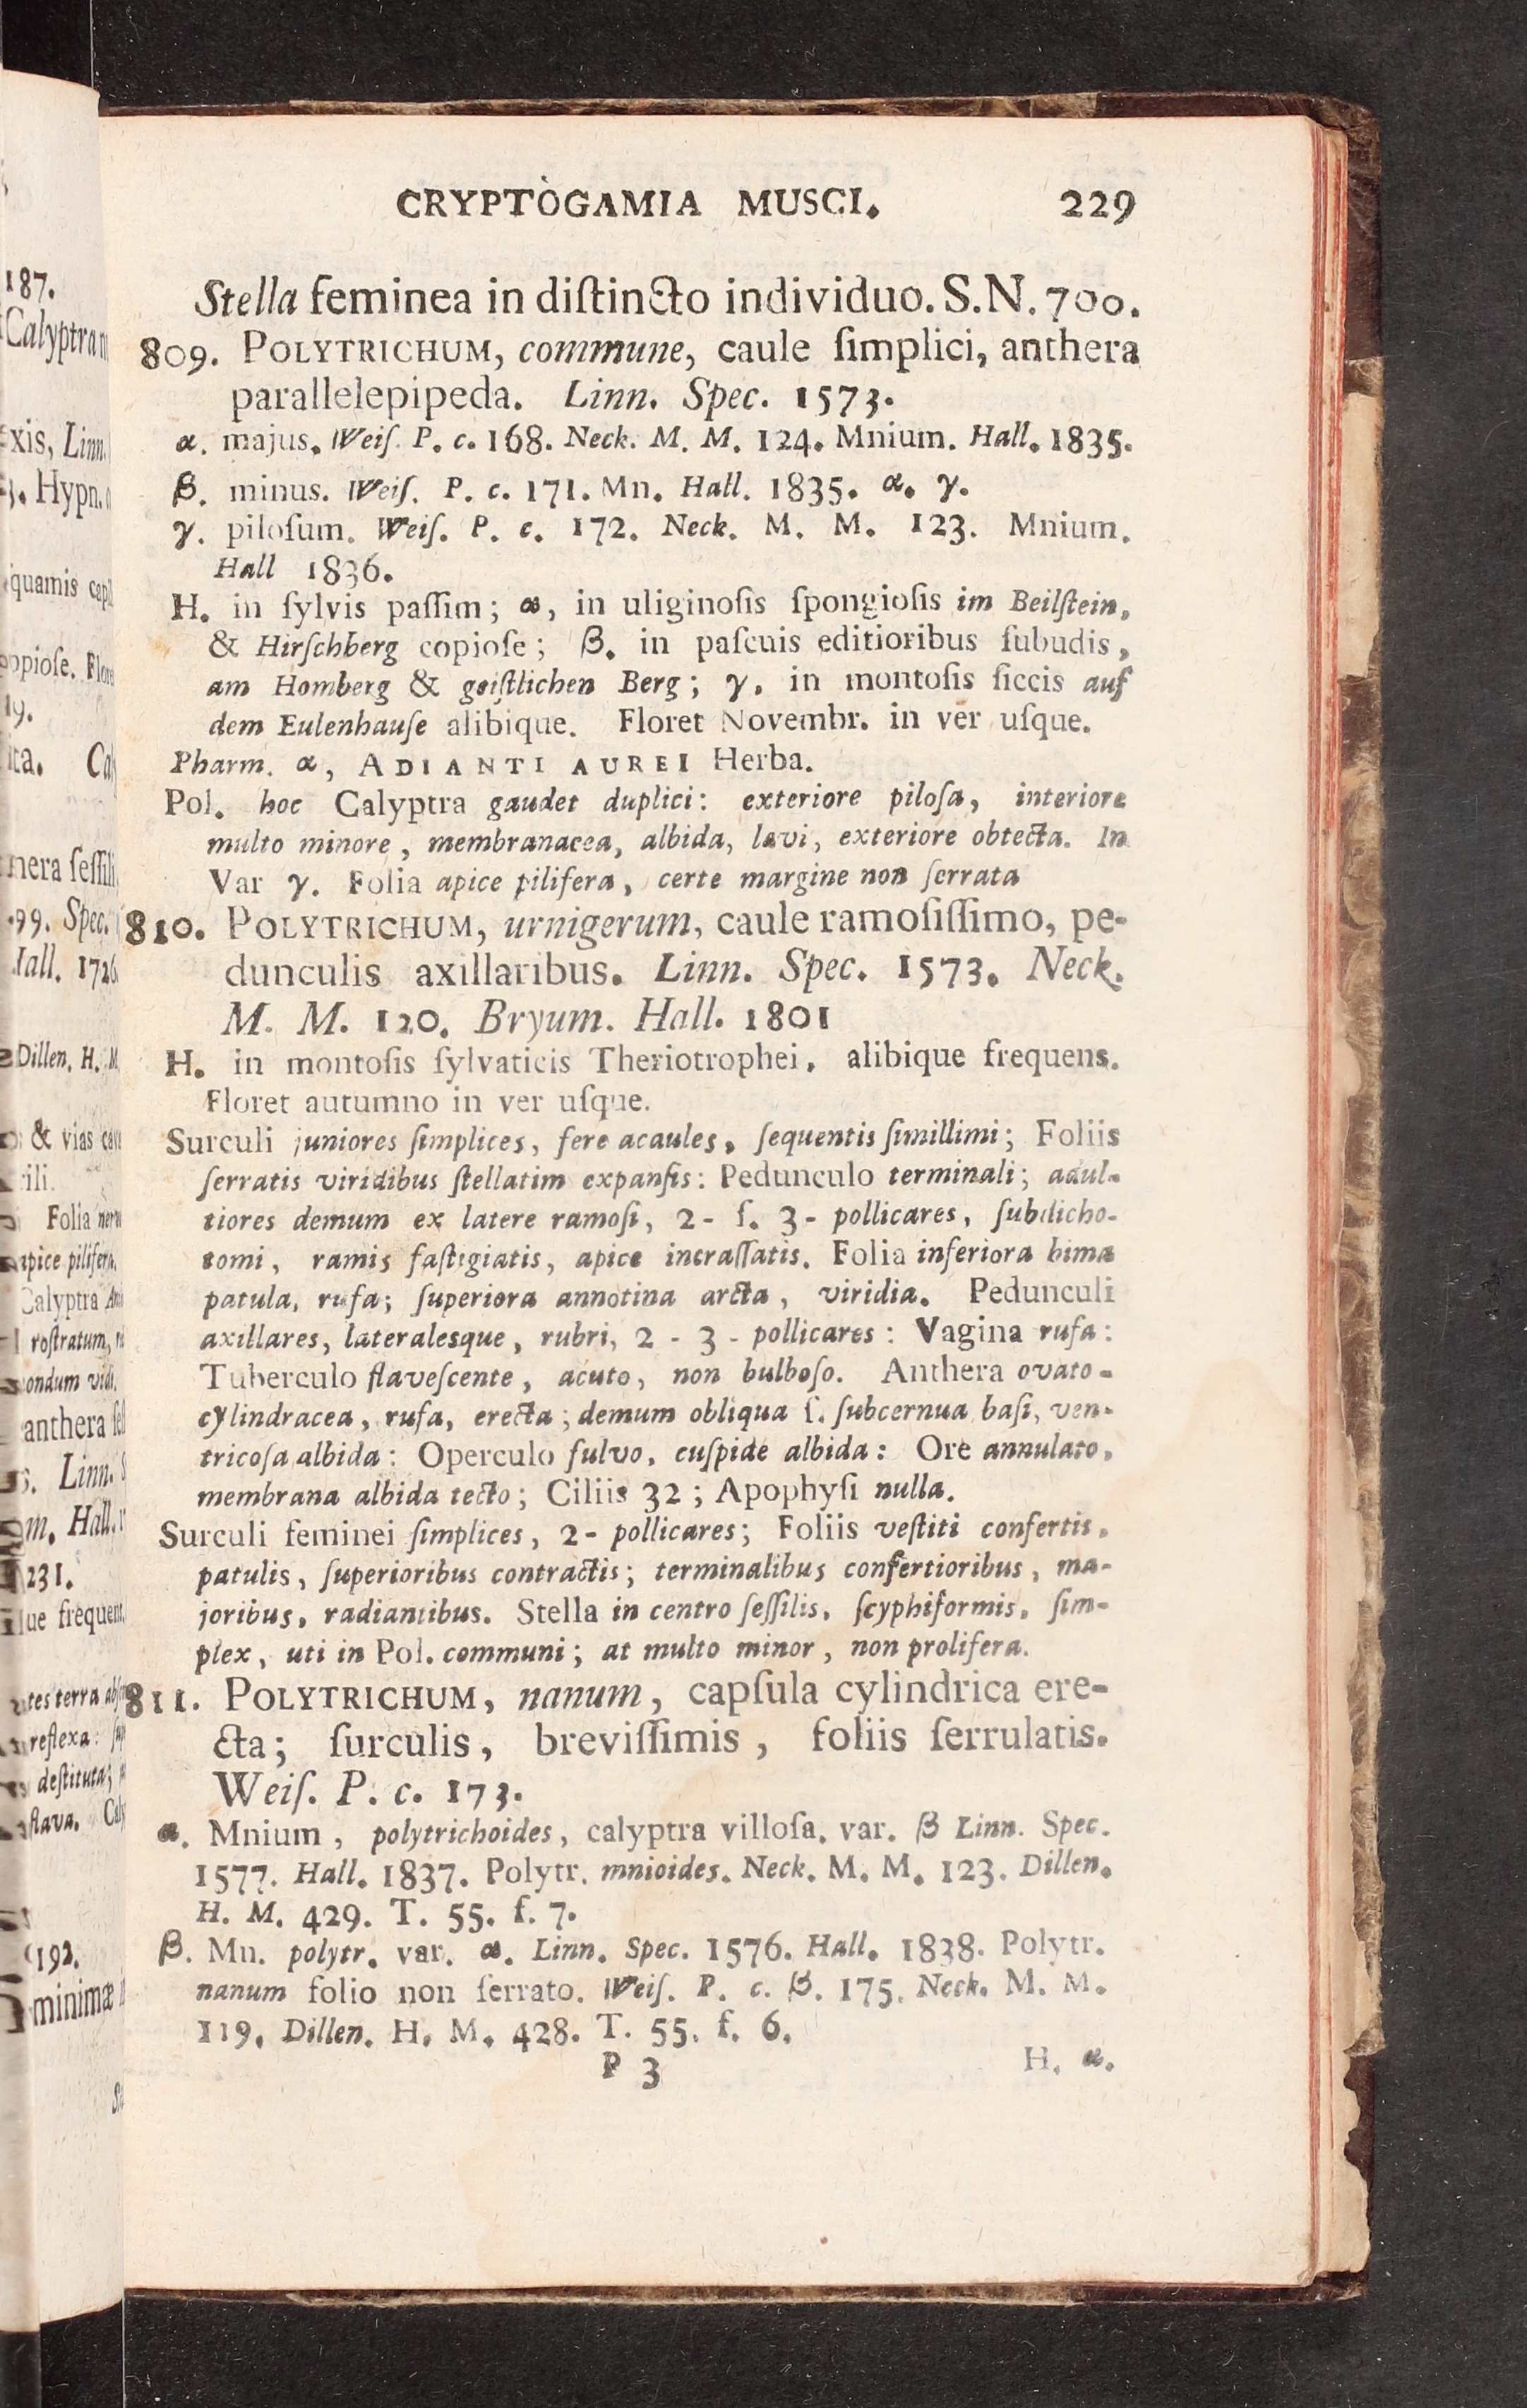 CRYPTOGAMIA MUSCI. 229
Stella feminea in diſtincto individuo. S.N. 700.
809. POLYTRICHUM, commune, caule ſimplici, anthera
parallelepipeda. Linn. Spec. 1573.
α. majus. Weiſ. P. c. 168. Neck. M. M. 124. Mnium. Hall. 1835.
β. minus. Weiſ. P. c. 171. Mn. Hall. 1835. α. γ.
γ. piloſum. Weiſ. P. c. 172. Neck. M. M. 123. Mnium.
Hall 1836.
H. in ſylvis paſſim; α, in uliginoſis ſpongioſis im Beilſtein,
& Hirſchberg copioſe; β. in paſcuis editioribus ſubudis,
am Homberg & geiſtlichen Berg; γ, in montoſis ſiccis auf
dem Eulenhauſe alibique. Floret Novembr. in ver uſque.
Pharm. α, ADIANTI AUREI Herba.
Pol. hoc Calyptra gaudet duplici: exteriore piloſa, interiore
multo minore, membranacea, albida, lævi, exteriore obtecta. In
Var γ. Folia apice pilifera, certe margine non ſerrata
810. POLYTRICHUM, urnigerum, caule ramoſiſſimo, pe-
dunculis axillaribus. Linn. Spec. 1573. Neck.
M. M. 120. Bryum. Hall. 1801
H. in montoſis ſylvaticis Theriotrophei, alibique frequens.
Floret autumno in ver uſque.
Surculi juniores ſimplices, fere acaules, ſequentis ſimillimi; Foliis
ſerratis viridibus ſtellatim expanſis: Pedunculo terminali; adul-
tiores demum ex latere ramoſi, 2- ſ. 3- pollicares, ſubdicho-
tomi, ramis faſtigiatis, apice incraſſatis. Folia inferiora bima
patula, rufa; ſuperiora annotina arcta, viridia. Pedunculi
axillares, lateralesque, rubri, 2 - 3 - pollicares: Vagina rufa:
Tuberculo flaveſcente, acuto, non bulboſo. Anthera ovato-
cylindracea, rufa, erecta; demum obliqua ſ. ſubcernua baſi, ven-
tricoſa albida: Operculo fulvo, cuſpide albida: Ore annulato,
membrana albida tecto; Ciliis 32; Apophyſi nulla.
Surculi feminei ſimplices, 2- pollicares; Foliis veſtiti confertis,
patulis, ſuperioribus contractis; terminalibus confertioribus, ma-
joribus, radiantibus. Stella in centro ſeſſilis, ſcyphiformis, ſim-
plex, uti in Pol. communi; at multo minor, non prolifera.
811. POLYTRICHUM, nanum, capſula cylindrica ere-
cta; ſurculis, breviſſimis, foliis ſerrulatis.
Weiſ. P. c. 173.
α. Mnium, polytrichoides, calyptra villoſa, var. β Linn. Spec.
1577. Hall. 1837. Polytr. mnioides. Neck. M. M. 123. Dillen.
H. M. 429. T. 55. f. 7.
β. Mn. polytr. var. α. Linn. Spec. 1576. Hall. 1838. Polytr.
nanum folio non ſerrato. Weiſ. P. c. β. 175. Neck. M. M.
119. Dillen. H. M. 428. T. 55. f. 6.
P 3 H. α.
187.
Calyptram
Linn.
Hypn.
quamis
Flore
19.
99. Spec.
1726
Dillen. H. M.
& vias
Folia
pilifera.
Calyptra
roſtratum,
anthera
Linn.
Hall.
231.
terra
reflexa:
deſtituta;
flava.
192.
minimæ